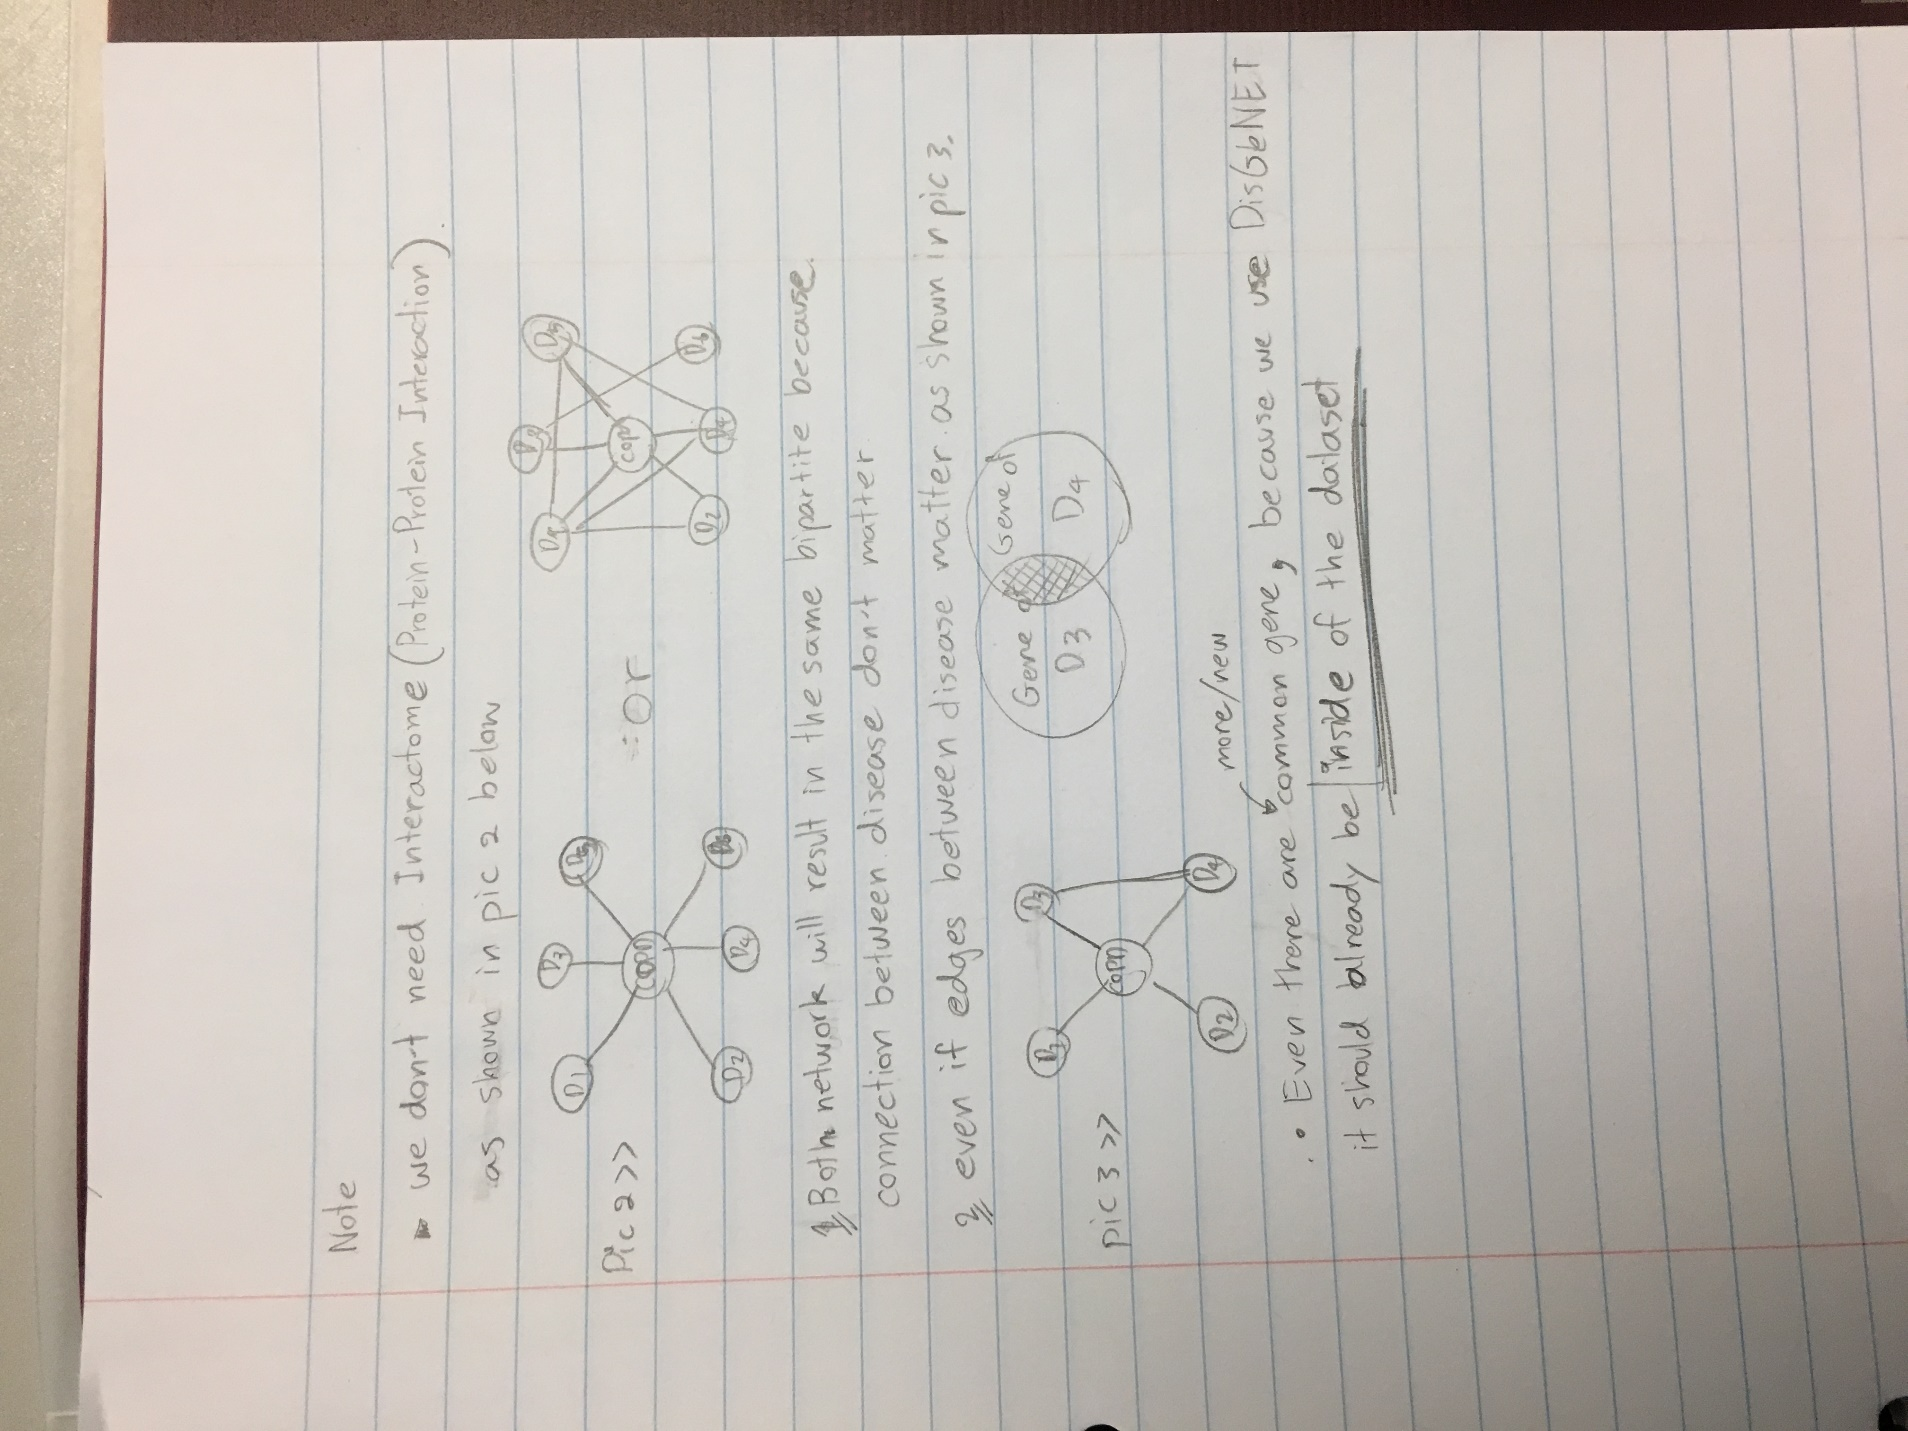 Note
we don't need Interactome (Protein-Protein Interaction).
as shown in pic 2 below
Pic 2 >>
D1 D3 D5 COPD D2 D4 D6
:Or
D3 D5 COPD D2 D4 D6
1 Both network will result in the same bipartite because.
connection between disease don't matter
2 even if edges between disease matter as shown in pic 3.
pic 3 >>
D1 D3 COPD D2 D4
Gene of D3
Gene of D4
more/new
• Even there are common gene, because we use DisGeNET
it should already be inside of the dataset